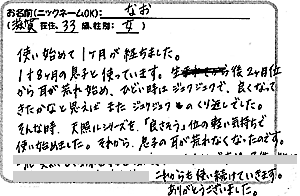 お名前(ニックネームOK): なお
(滋賀 在住、33 歳、性別: 女 )
使い始めて1ヶ月が経ちました。
1才8ヶ月の息子と使っています。生後2ヶ月位
から耳が荒れ始め、ひどい時はジュクジュクで、良くなって
きたかなと思えば またジュクジュク のくり返しでした。
そんな時、天照シリーズを「良さそう」位の軽い気持ちで
使い始めました。それから、息子の耳が荒れなくなったのです。
これからも使い続けていきます。
ありがとうございました。